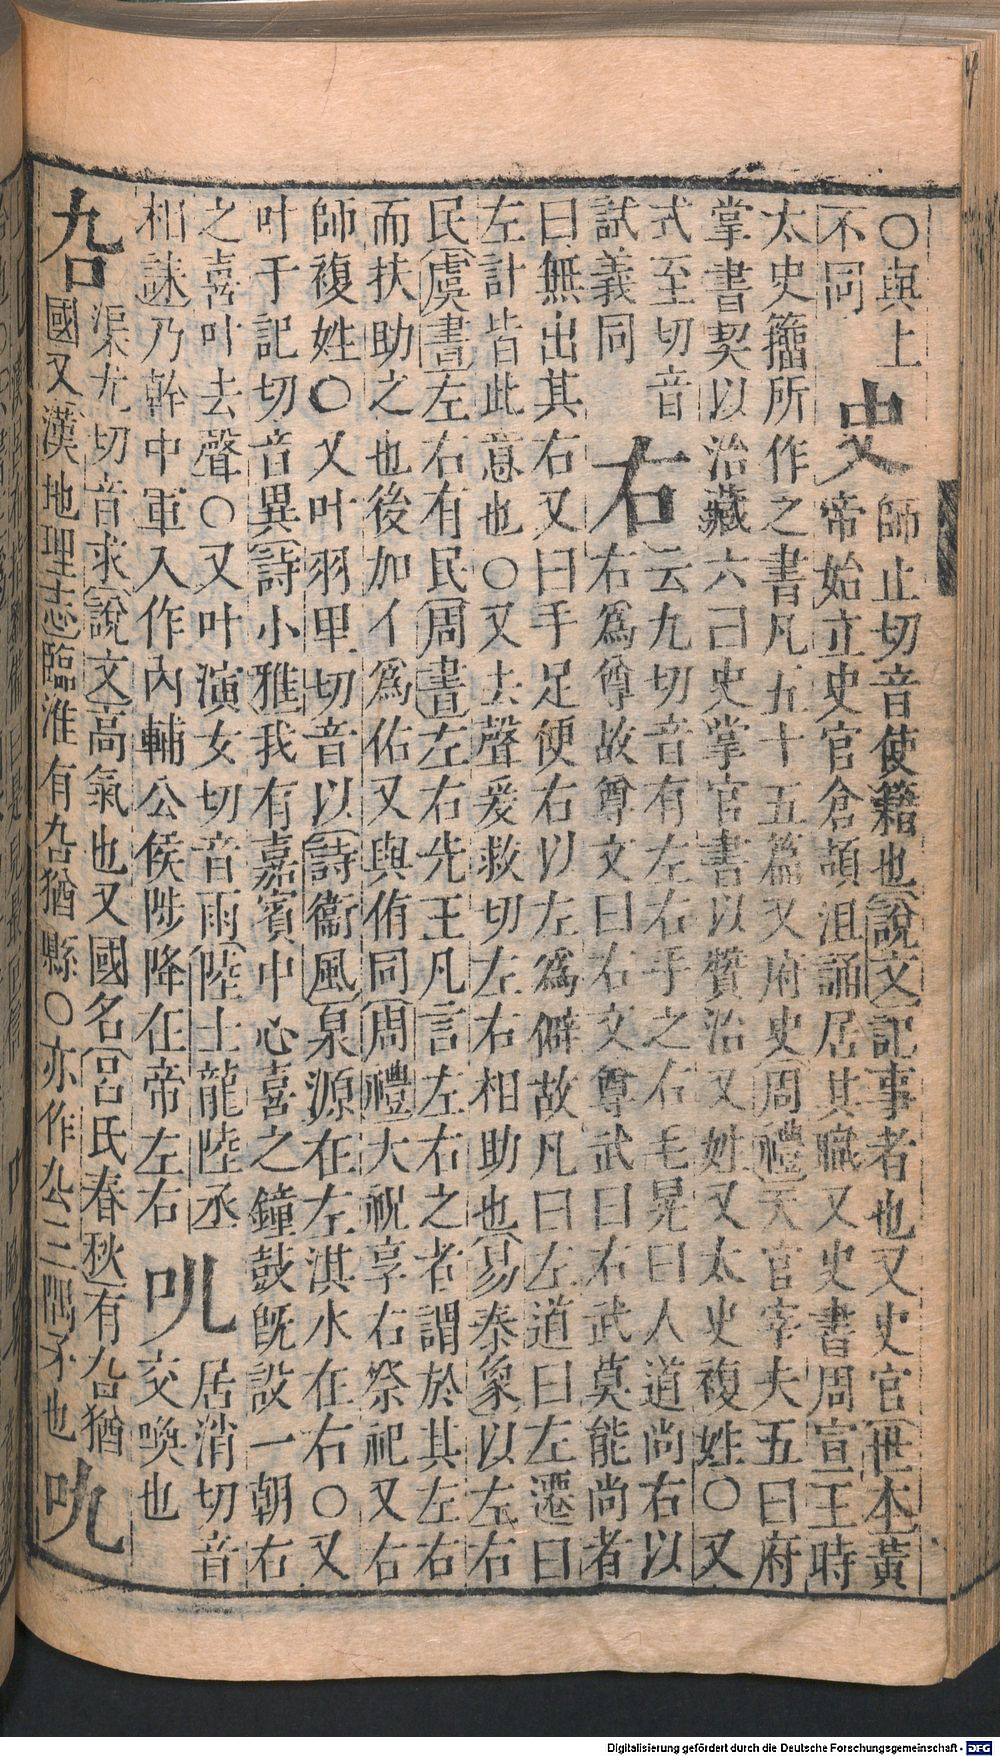 ○與上
不同
史
師止切音使籍也說文記事者也又史官世本黃
帝始立史官倉頡沮誦居其職又史書周宣王時
太史籒所作之書凡五十五篇又府史周禮天官宰夫五曰府
掌書契以治藏六曰史掌官書以贊治又姓又太史複姓○又
式至切音
試義同
右
云九切音有左右手之右毛晃曰人道尚右以
右爲尊故尊文曰右文尊武曰右武莫能尚者
曰無出其右又曰手足便右以左爲僻故凡曰左道曰左遷曰
左計皆此意也○又去聲爰救切左右相助也易泰象以左右
民虞書左右有民周書左右先王凡言左右之者謂於其左右
而扶助之也後加亻爲佑又與侑同周禮大祝享右祭祀又右
師複姓○又叶羽里切音以詩衞風泉源在左淇水在右○又
叶于記切音異詩小雅我有嘉賓中心喜之鐘鼓旣設一朝右
之喜叶去聲○又叶演女切音雨陸士龍陸丞
相誄乃幹中軍入作內輔公侯陟降在帝左右
叫
居消切音
交喚也
叴
渠尤切音求說文高氣也又國名呂氏春秋有叴猶
國又漢地理志臨淮有叴猶縣○亦作厹三隅矛也
叺
Digitalisierung gefördert durch die Deutsche Forschungsgemeinschaft - DFG